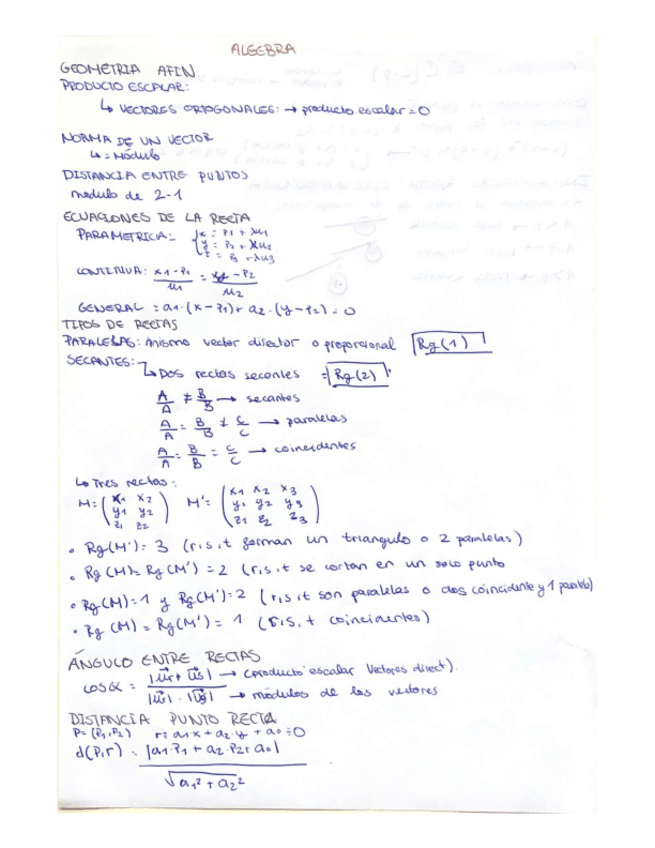 ALGEBRA
GEOMETRIA AFIN
PRODUCTO ESCALAR:
↳ VECTORES ORTOGONALES: → producto escalar = 0
NORMA DE UN VECTOR
↳ = Módulo
DISTANCIA ENTRE PUNTOS
modulo de 2-1
ECUACIONES DE LA RECTA
PARAMETRICA: { x = P1 + λu1
y = P2 + λu2
z = P3 + λu3
CONTINUA: x1-P1 / u1 = y-P2 / u2
GENERAL = a1·(x-P1)+ a2·(y-P2)=0
TIPOS DE RECTAS
PARALELAS: mismo vector director o proporcional Rg(1)
SECANTES:
↳ Dos rectas secantes = Rg(2)
A/A ≠ B/B → secantes
A/A = B/B ≠ C/C → paralelas
A/A = B/B = C/C → coincidentes
↳ Tres rectas:
M = ( x1 x2 M' = ( x1 x2 x3
y1 y2 y1 y2 y3
z1 z2 ) z1 z2 z3 )
• Rg(M') = 3 (r,s,t forman un triangulo o 2 paralelas)
• Rg(M)= Rg(M') = 2 (r,s,t se cortan en un solo punto
• Rg(M)=1 y Rg(M')=2 (r,s,t son paralelas o dos coincidente y 1 paralela)
• Rg (M) = Rg(M') = 1 (r,s,t coincidentes)
ÁNGULO ENTRE RECTAS
cosα = |ur + us| → (producto escalar vectores direct).
|ur| · |us| → módulos de los vectores
DISTANCIA PUNTO RECTA
P= (P1,P2) r: a1x + a2y + a0 = 0
d(P,r) = |a1·P1 + a2·P2+ a0|
√a1² + a2²